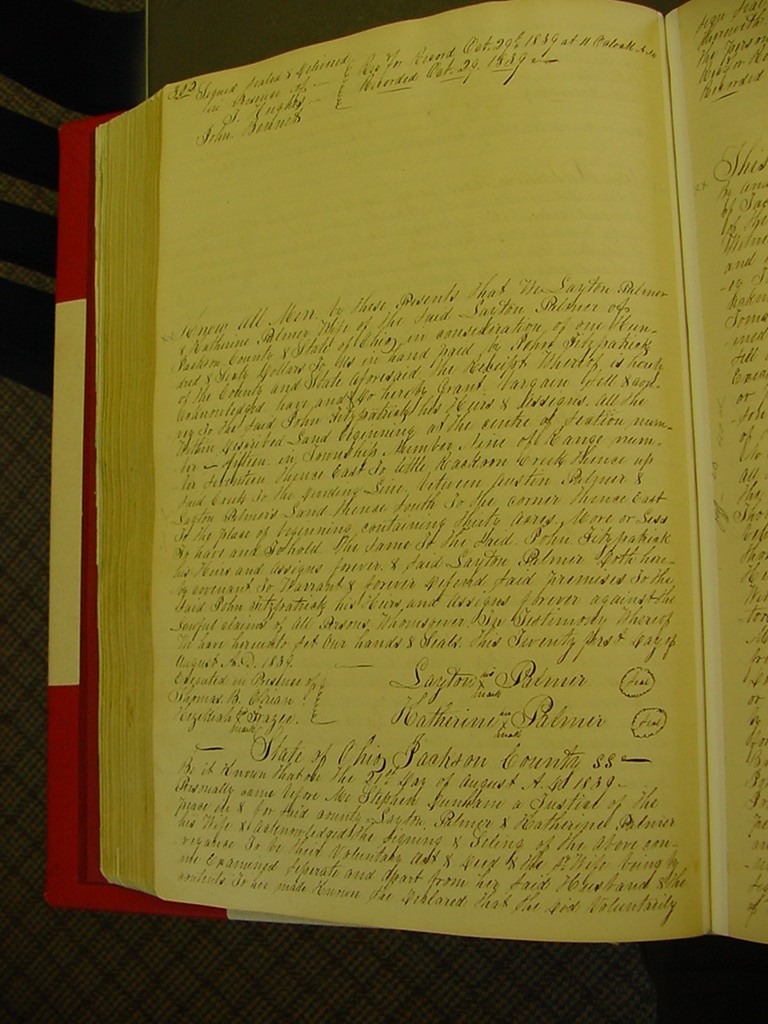 382 Signed Sealed & Delivered
in Presence of
J. Hughes
John. Bennet
Rec'd for Record Oct. 29th 1839 at 11 Oclock A.M
Recorded Oct. 29. 1839
Know all Men by these Presents that We Layton Palmer
& Katherine Palmer Wife of the Said Layton Palmer of
Jackson County & State of Ohio, in consideration of one Hun-
dred & Sixty Dollars To Us in hand paid by John Fitzpatrick
of the County and State aforesaid the Receipt Whereof is hereby
Acknowledged have and do hereby Grant, bargain Sell & Con-
vey To the Said John Fitzpatrick his Heirs & Assigns. All the
Within Described Land beginning at the centre of Section num-
ber Fifteen in Township Number Nine of Range num-
ber Seventeen thence East To little Rackoon Creek thence up
Said Creek To the Dividing Line between Austin Palmer &
Layton Palmer's Land thense South To the corner thense East
To the plase of beginning containing thirty Acres, More or Less
To have and To hold The Same To the Said John Fitzpatrick
his Heirs and Assigns forever. & Said Layton Palmer Doth here-
by covenant To Warrant & forever Defend Said premises To the
Said John Fitzpatrick his Heirs and Assigns forever against the
Lawful claims of All Persons Whomsoever. In Testimony Whereof
We have hereunto Set Our hands & Seals. this Twenty first day of
August A.D. 1839.
Executed in Presense of
Thomas B.
Hezekiah his mark Frazee.
Layton his mark Palmer Seal
Katherine her mark Palmer Seal
State of Ohio Jackson County SS
Be it Known that on the 21st day of August A.D. 1839
Personally came before Me Stephen a Justise of the
peace in & for Said county Layton Palmer & Katherine Palmer
his Wife & Acknowledged the Signing & Seling of the above con-
veyanse To be their Voluntary Act & Deed & the Sd Wife being by
me Examened Seperate and apart from her Said Husband & the
contents To her made Known She Declared that She did Voluntarily